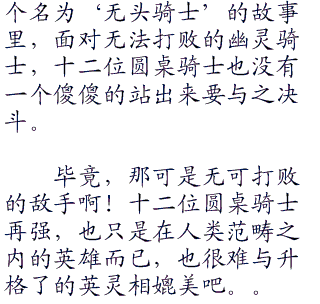 个名为‘无头骑士’的故事
里，面对无法打败的幽灵骑
士，十二位圆桌骑士也没有
一个傻傻的站出来要与之决
斗。
毕竟，那可是无可打败
的敌手啊！十二位圆桌骑士
再强，也只是在人类范畴之
内的英雄而已，也很难与升
格了的英灵相媲美吧。。